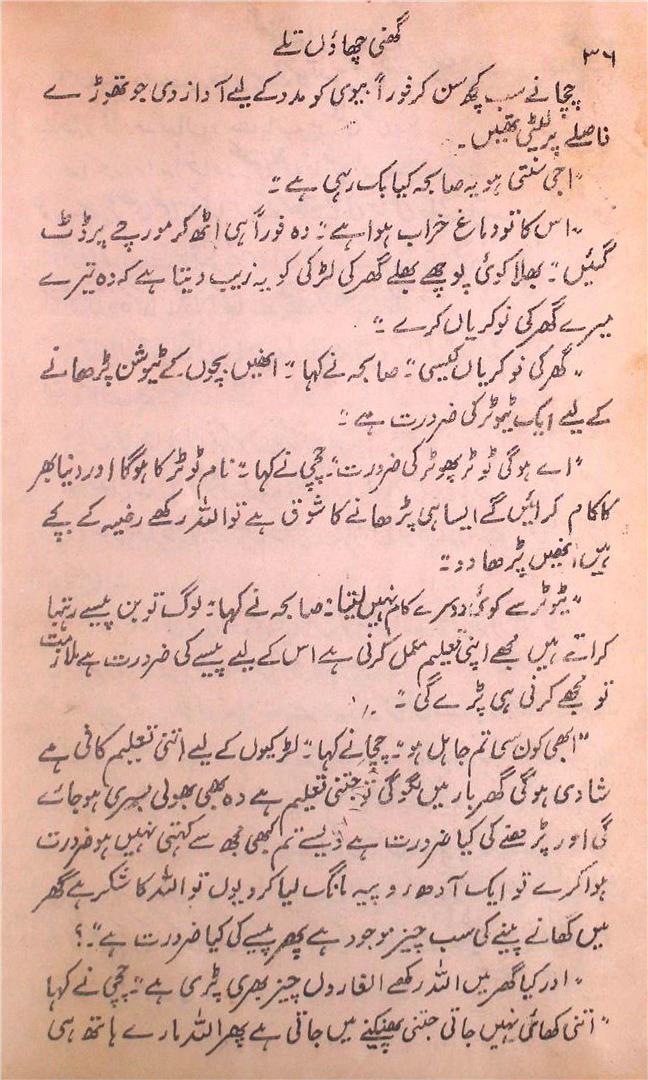 ۳۶
گھنی چھاؤں تلے
چچا نے سب کچھ سن کر فوراً بیوی کو مدد کے لیے آواز دی جو تھوڑے
فاصلے پر لیٹی تھیں۔
"اجی سنتی ہو یہ صابحہ کیا بک رہی ہے"۔
"اس کا تو دماغ خراب ہوا ہے"۔ وہ فوراً ہی اٹھ کر مورچے پر ڈٹ
گئیں"۔ بھلا کوئی پوچھے بھلے گھر کی لڑکی کو یہ زیب دیتا ہے کہ وہ تیرے
میرے گھر کی نوکریاں کرے"۔
"گھر کی نوکریاں کیسی"۔ صابحہ نے کہا"۔ انھیں بچوں کے ٹیوشن پڑھانے
کے لیے ایک ٹیوٹر کی ضرورت ہے"۔
"اے ہوگی ٹوٹر پھوٹر کی ضرورت"۔ چچی نے کہا"۔ نام ٹوٹر کا ہوگا اور دنیا بھر
کا کام کرائیں گے ایسا ہی پڑھانے کا شوق ہے تو اللہ رکھے رضیہ کے بچے
ہیں انھیں پڑھا دو"۔
"ٹیوٹر سے کوئی دوسرے کام نہیں لیتا"۔ صابحہ نے کہا"۔ لوگ تو بن پیسے
کراتے ہیں مجھے اپنی تعلیم مکمل کرنی ہے اس کے لیے پیسے کی ضرورت ہے ملازمت
تو مجھے کرنی ہی پڑے گی"۔
"ابھی کون سی تم جاہل ہو"۔ چچا نے کہا"۔ لڑکیوں کے لیے اتنی تعلیم کافی ہے
شادی ہوگی گھر بار میں لگو گی تو جتنی تعلیم ہے وہ بھی بھولی بسری ہو جائے
گی اور پڑھنے کی کیا ضرورت ہے ویسے تم کبھی مجھ سے کہتی نہیں ہو ضرورت
ہوا کرے تو ایک آدھ روپیہ مانگ لیا کرو یوں تو اللہ کا شکر ہے گھر
میں کھانے پینے کی سب چیز موجود ہے پھر پیسے کی کیا ضرورت ہے"۔؟
"اور کیا گھر میں اللہ رکھے الغاروں چیز بھری پڑی ہے"۔ چچی نے کہا
"اتنی کھائی نہیں جاتی جتنی پھینکنے میں جاتی ہے پھر اللہ مارے ہاتھ ہی